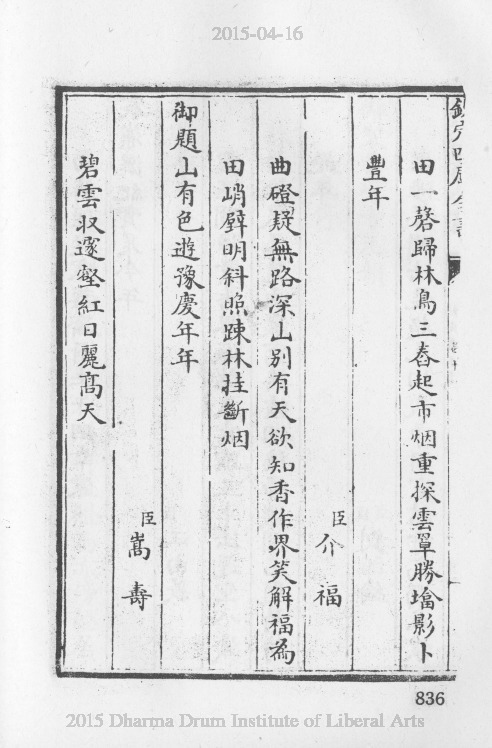 2015-04-16
欽定四庫全書
田一磬歸林鳥三舂起市烟重探雲覃勝墖影卜
豐年
臣介福
曲磴疑無路深山別有天欲知香作界笑解福為
田峭壁明斜照踈林挂斷烟
御題山有色遊豫慶年年
臣嵩壽
碧雲収邃壑紅日麗髙天
836
2015 Dharma Drum Institute of Liberal Arts